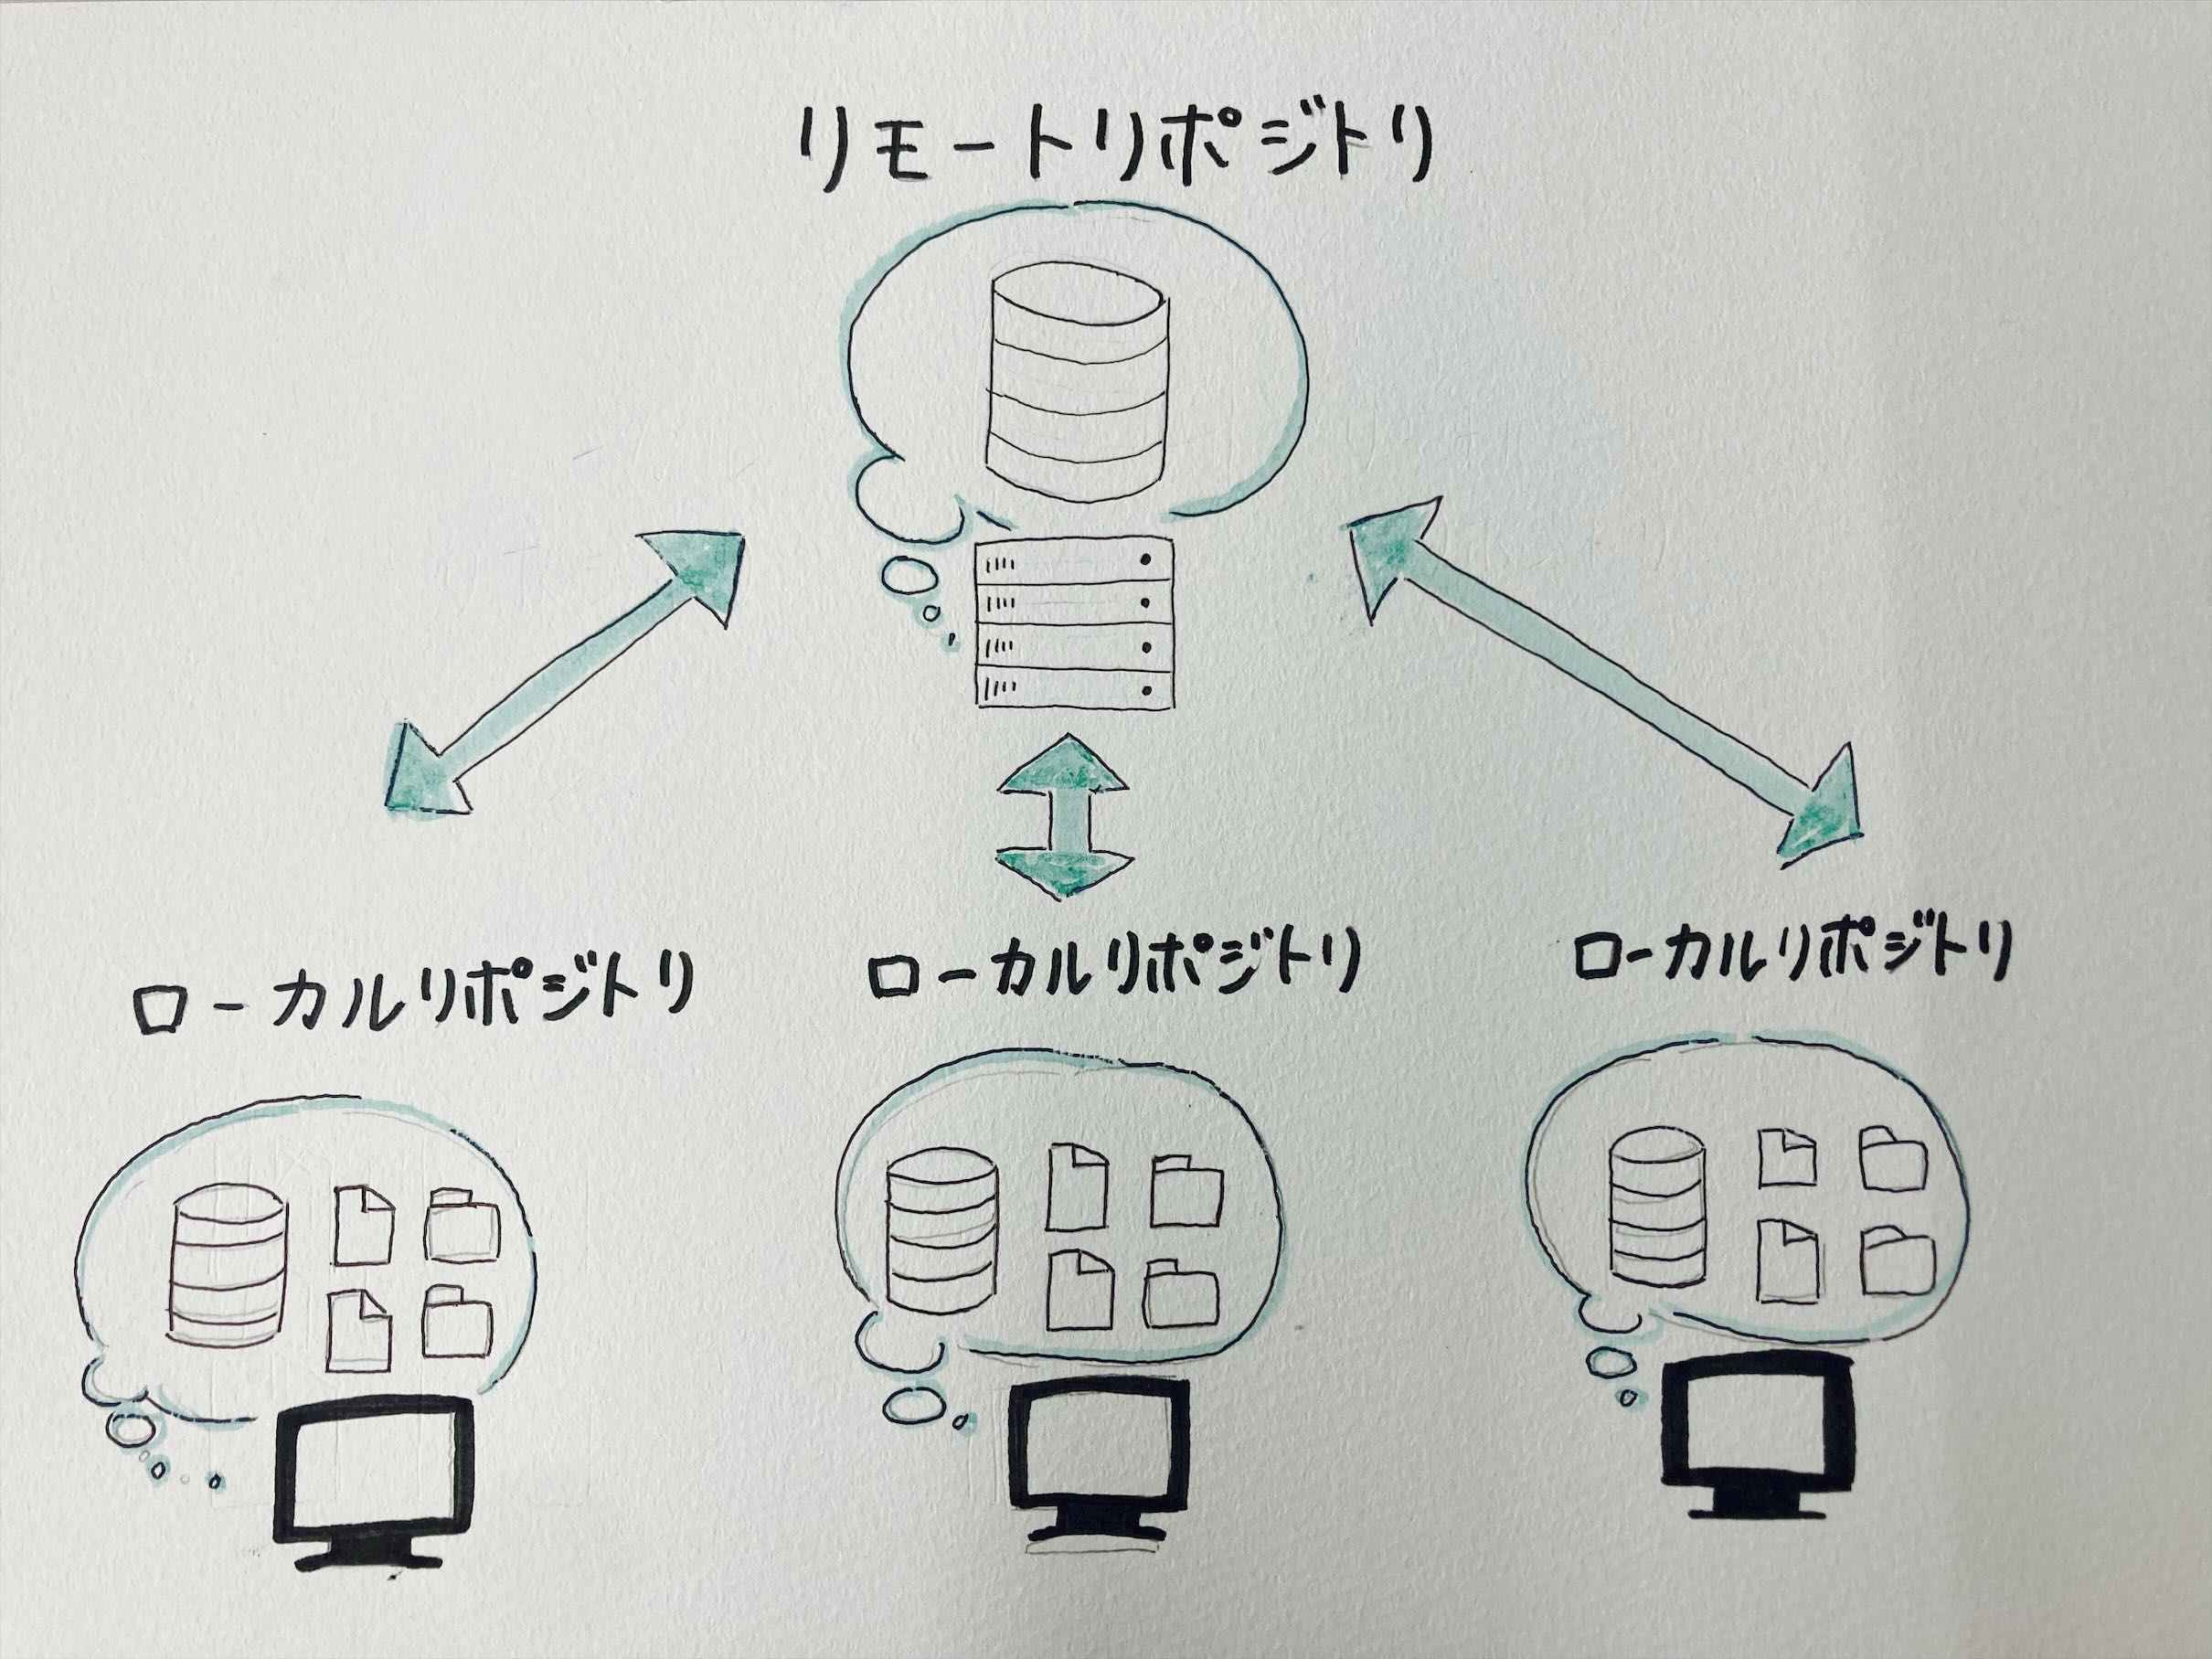 リモートリポジトリ
ローカルリポジトリ
ローカルリポジトリ
ローカルリポジトリ